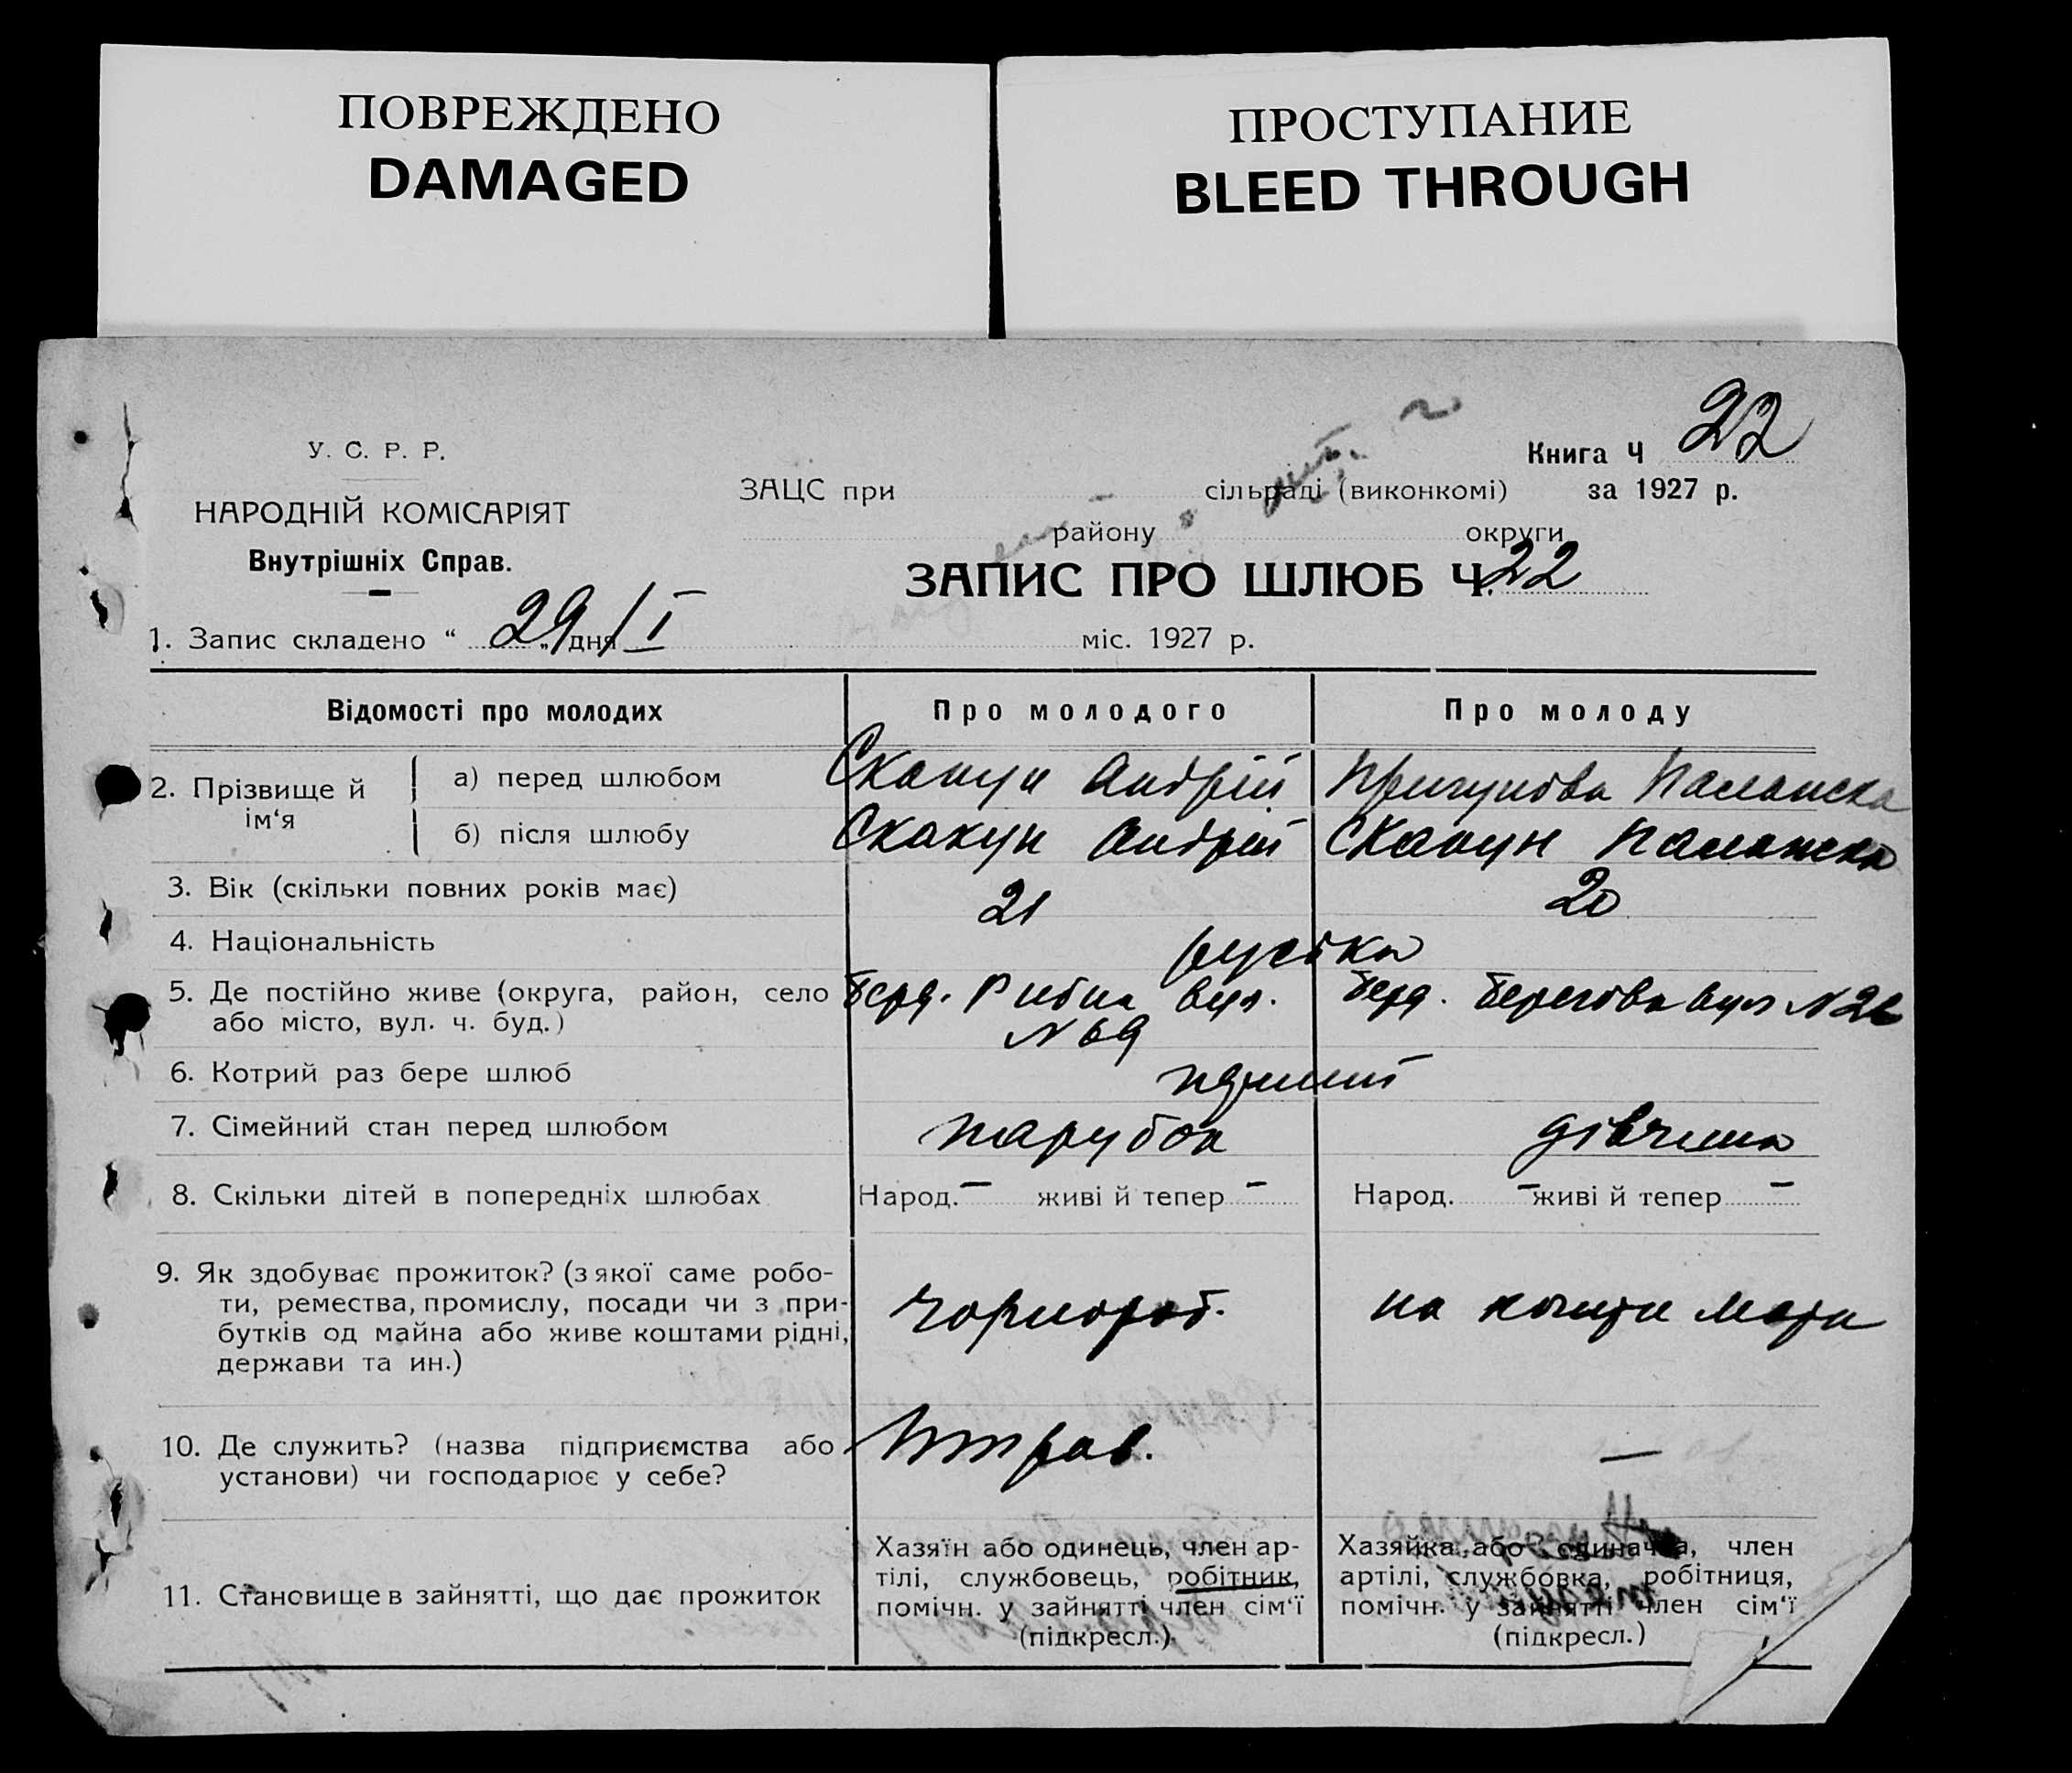 ПОВРЕЖДЕНО
DAMAGED
ПРОСТУПАНИЕ
BLEED THROUGH
У. С. Р. Р.
НАРОДНІЙ КОМІСАРІЯТ
Внутрішніх Справ.
Книга Ч 22
ЗАЦС при сільраді (виконкомі) за 1927 р.
району округи
ЗАПИС ПРО ШЛЮБ Ч. 22
1. Запис складено “ 29 „ дня / I міс. 1927 р.
Відомості про молодих Про молодого Про молоду
2. Прізвище й ім‘я
а) перед шлюбом Скакун Андрій
б) після шлюбу Скакун Андрій Скакун
3. Вік (скільки повних років має) 21 20
4. Національність
5. Де постійно живе (округа, район, село Берд. Рибна вул. Берд. Берегова вул №
або місто, вул. ч. буд.) № 69
6. Котрий раз бере шлюб перший
7. Сімейний стан перед шлюбом парубок дівчина
8. Скільки дітей в попередніх шлюбах Народ. – живі й тепер – Народ. – живі й тепер –
9. Як здобуває прожиток? (з якої саме робо-
ти, ремества, промислу, посади чи з при- чорнороб. на кошти
бутків од майна або живе коштами рідні,
держави та ин.)
10. Де служить? (назва підприємства або —
установи) чи господарює у себе?
11. Становище в зайнятті, що дає прожиток
Хазяїн або одинець, член ар-
тілі, службовець, робітник,
помічн. у зайнятті член сім‘ї
(підкресл.)
Хазяйка або одиначка, член
артілі, службовка, робітниця,
помічн. у зайнятті член сім‘ї
(підкресл.)